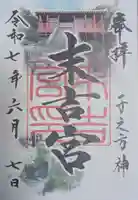 奉拝
子之方神
末吉宮
令和七年六月七日